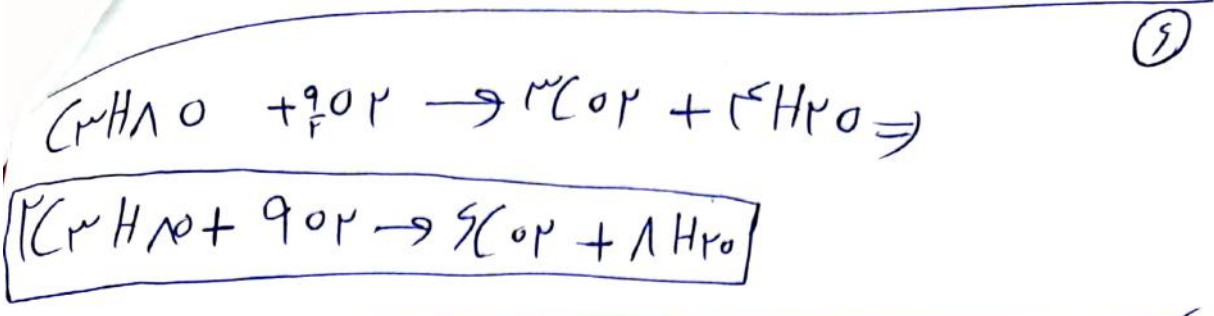 ۶
C۳H۸O + ۹/۲ O۲ → ۳CO۲ + ۴H۲O ⇒
۲C۳H۸O + ۹O۲ → ۶CO۲ + ۸H۲O